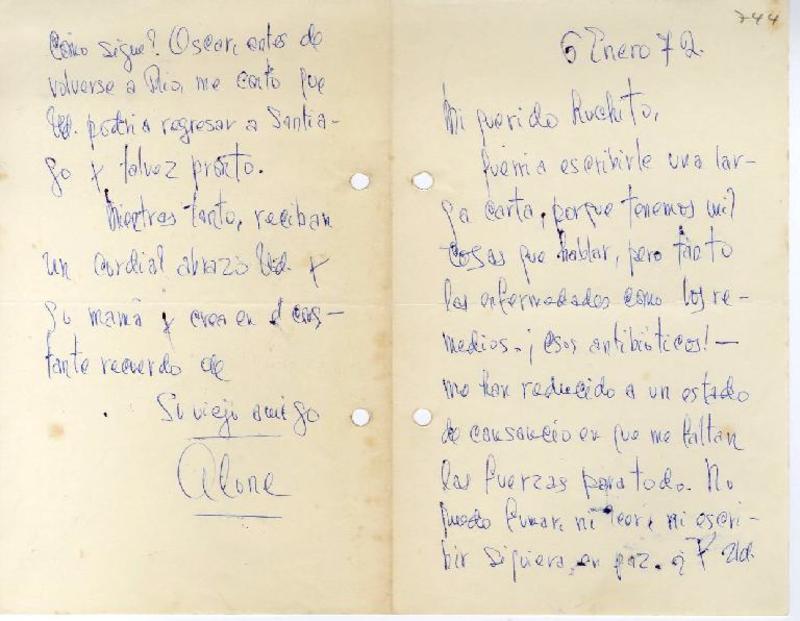 744
6 Enero 72.
Mi querido Luchito,
querría escribirle una lar-
ga carta, porque tenemos mil
cosas que hablar, pero tanto
las enfermedades como los re-
medios - ¡esos antibióticos! -
me han reducido a un estado
de cansancio en que me faltan
las fuerzas para todo. No
puedo fumar, ni leer, ni escri-
bir siquiera, en paz. ¿Y Ud.
Cómo sigue? Oscar, antes de
volverse a Río, me contó que
Ud. podría regresar a Santia-
go y talvez pronto.
Mientras tanto, reciban
un cordial abrazo Ud. y
su mamá y crea en el cons-
tante recuerdo de
Su viejo amigo
Alone